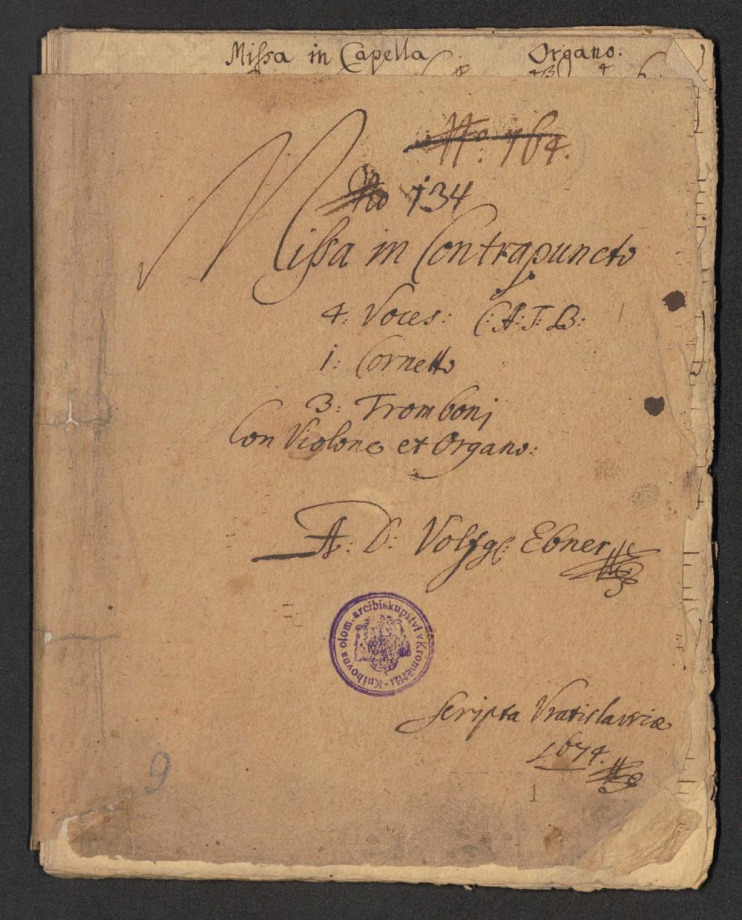 Missa in Capella Organo.
No: 164.
No 134
Missa in Contrapuncto
4: Voces: C: A: T: B:
1: Cornetto
3: Tromboni
Con Violone et Organo:
A: D: Volfg: Ebner
Knihovna olom. arcibiskupství v Kroměříži
Scripta Vratislaviæ
1674.
9
1